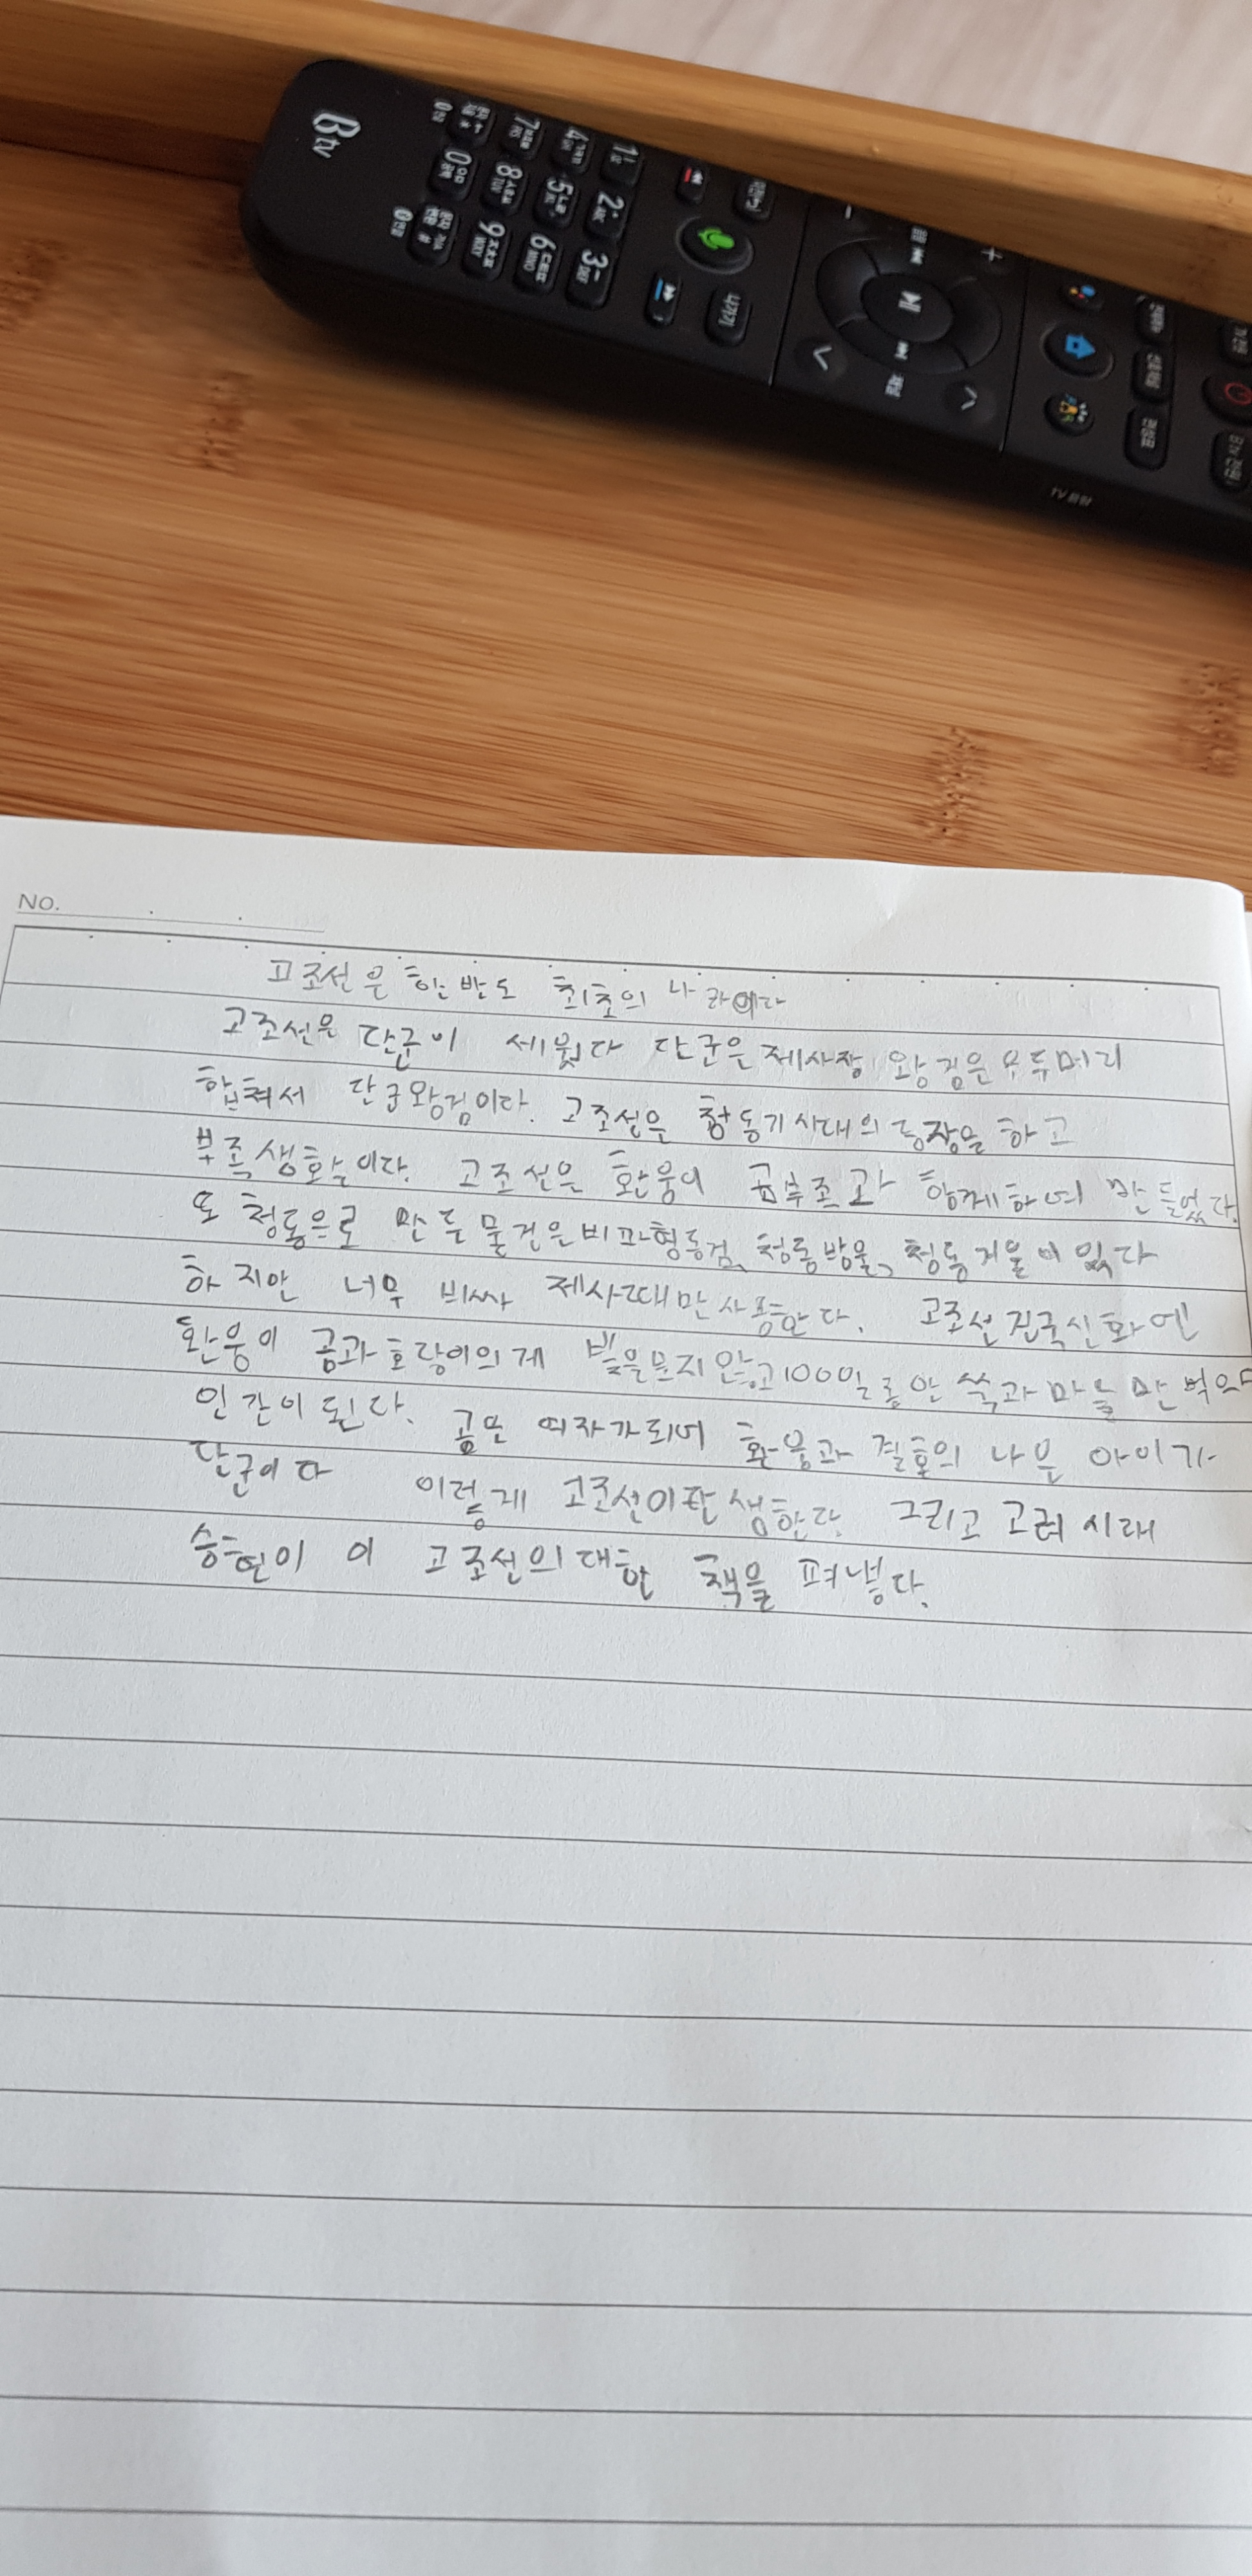 B tv
1 2 ABC 3 DEF
4 5 6 MNO
7 8 TUV 9 WXY
0 #
나가기
TV
NO.
고조선은 한반도 최초의 나라이다
고조선은 단군이 세웠다 단군은 제사장 왕검은 우두머리
합쳐서 단군왕검이다. 고조선은 청동기시대의 등장을 하고
부족생활이다. 고조선은 환웅이 곰부족과 함께하여 만들었다.
또 청동으로 만든 물건은 비파형동검, 청동방울, 청동거울이 있다
하지만 너무 비싸 제사때만 사용한다. 고조선 건국신화엔
환웅이 곰과 호랑이의게 빛을 보지 않고 100일 동안 쑥과 마늘만 먹으면
인간이 된다. 곰은 여자가되어 환웅과 결혼의 나은 아이가
단군이다 이렇게 고조선이 탄생한다. 그리고 고려 시대
승현이 이 고조선의 대한 책을 펴냈다.